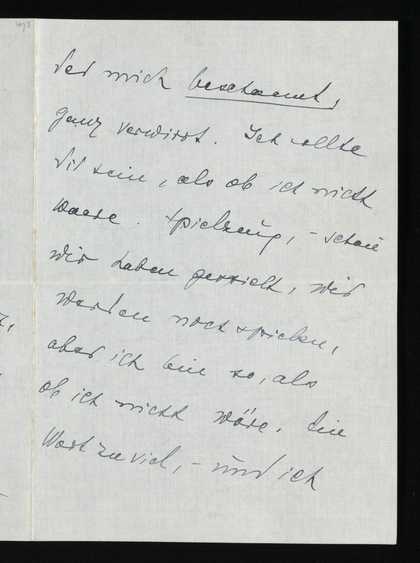 der mich beschaemt,
ganz verwirrt. Ich sollte
Dir sein, als ob ich nicht
waere. Spielzeug, - schau
wir haben gespielt, wir
werden noch spielen,
aber ich bin so, als
ob ich nicht wäre. Ein
Wort zu viel, - und ich